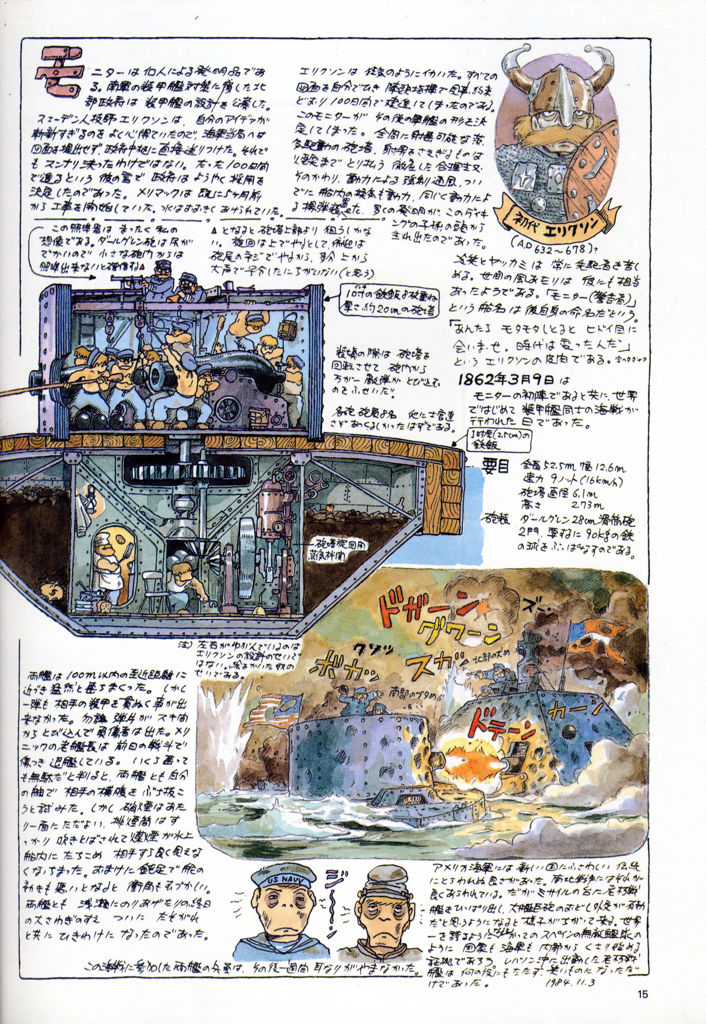 モ
ニターは個人による発明品であ
る。南軍の装甲艦建造に対抗した北
部政府は 装甲艦の設計を公募した。
スェーデン人技師エリクソンは、自分のアイデアが
図面も提出せず政府中枢に直接送りつけた。それで
もスンナリ決ったわけではない。たった100日間
で造るという彼の言で 政府はようやく採用を
決定したのであった。メリマックは既に5ヶ月前
から工事を開始していた。
エリクソンは 狂気のようにイカレていた。すべての
図面を自分でひき 陣頭指揮で
どおり100日間で建造してしまったのである。
このモニターが その後の軍艦の形を決
定してしまった。全周に射撃可能な旋
回砲塔、射界をさまたげるものは
徹底した合理主義
そのかわり、動力による強制通風、つい
でに船内の換気も動力、同じく動力によ
る揚弾装置など、多くの発明が、このヴァイキ
ングの子孫の頭から
生れ出たのであった。
初代 エリクソン
(AD632~678)?
この断面図は まったく私の
想像である。ダールグレン砲は尻が
でかいので 小さな砲門からは
照準出来ないと推測し▲
▲となると砲塔上部より狙うしかな
い。旋回は上でやるとして、俯仰は
砲尾のネジでやるから、多分上から
大声でどなったにちがいない(と思う)
1吋の鉄飯8枚重ね
厚さ約20cmの砲塔
装填の際は 砲塔を
回転させて 砲門から
万が一敵弾がとび込むの
をふせいだ。
各砲 砲員8名 他に士官達
さぞあつくるしかったはずである。
1吋厚(2.5cm)の
鉄飯
笑いとヤッカミは 常に先駆者を苦し
める。世間の風あたりは 彼にも相当
あったようである。「モニター(警告者)」
という船名は 彼自身の命名だという。
「あんたら モタモタしとると ヒドイ目に
会いまっせ。時代は変ったんだ」
というエリクソンの皮肉である。
1862年3月9日は
モニターの初陣であると共に、世界
ではじめて 装甲艦同士の海戦が
行われた 日であった。
要目 全長52.5m 幅12.6m
速力 9ノット(16km/h)
砲塔直径6.1m
高さ 2.73m
砲装 ダールグレン28cm滑腔砲
2門、重さ90kgの鉄
の球をぶっぱなすのである。
砲塔旋回用
蒸気機関
注) 左右がゆがんでいるのは
エリクソンの設計のせいで
はない。
せいである。
ドガーン
グワーン
ズーン
ガツッ
ボカッ
スカッ
北部の太め
南部のブタめ!
ドテーン
カーン
両艦は100m以内の至近距離に
近づき猛然と撃ちまくった。しかし
一弾も相手の装甲を貫ぬく事が出
来なかった。勿論 弾片がスキ間
からとび込んで負傷者は出た。メリ
マックの老艦長は 前日の戦斗で
傷つき退艦している。いくら撃って
も無駄だと判ると、両艦とも自分
の舳で 相手の横腹を ぶち抜こ
うと試みた。しかし 砲煙はあた
り一面にただよい、排煙筒はす
っかり 吹きとばされて煤煙が水上
船内に たちこめ 相手すら良く見えな
くなっちまった。おまけに 鈍足で舵の
ききも悪いとなると 衝角もおぼつかない。
両艦とも 浅瀬にのりあげたりの終日
の大さわぎのすえ ついに たそがれ
と共に ひきわけに なったのであった。
US NAVY
ジーーッ
アメリカ海軍には 新しい国にふさわしい 伝統
にとらわれぬ良さがあった。南北戦争にはそれが
良くあらわれている。だがミサイルの台に老朽戦
艦をひっぱり出し、大艦巨砲のおどし外交が有効
だと思うようになると 様子がちがって来る。世界一
を誇るようになった かつての スペインの無敵艦隊の
ように 国家も海軍も内部からくさり始める
証拠であろう。レバノン沖に出動した老朽戦
艦は 何の役にもたたず、笑いものになっただ
けであった。 1984.11.3
この海戦に参加した両艦の兵員は、その後一週間 耳なりがやまなかった。
15